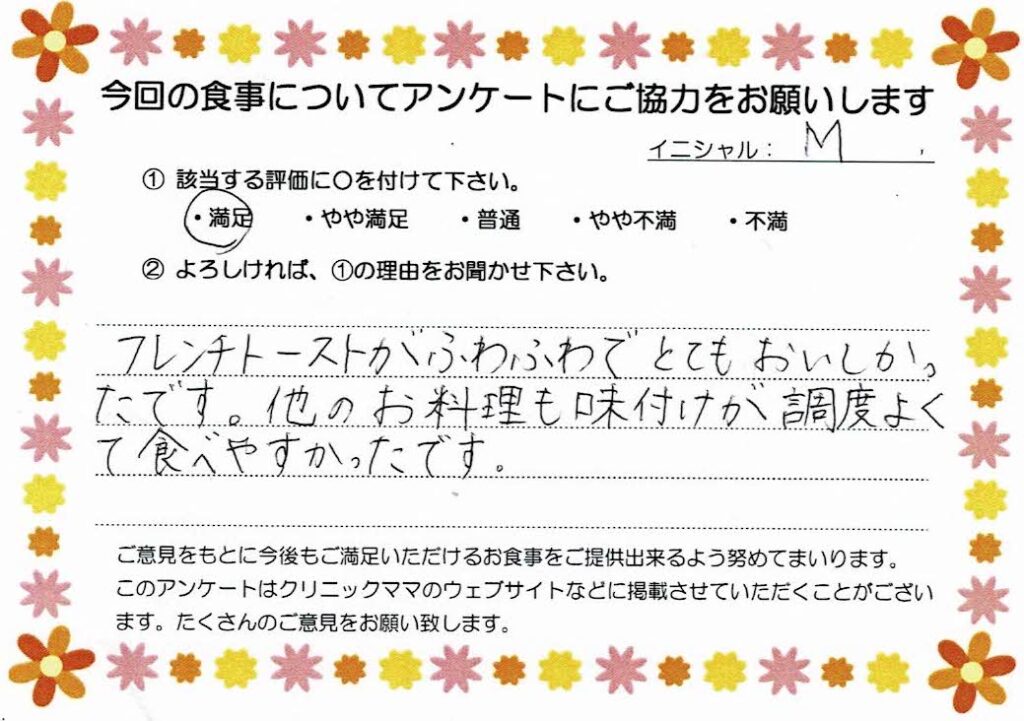 今回の食事についてアンケートにご協力をお願いします
イニシャル： M
① 該当する評価に○を付けて下さい。
・満足 ・やや満足 ・普通 ・やや不満 ・不満
② よろしければ、①の理由をお聞かせ下さい。
フレンチトーストがふわふわで とても おいしかっ
たです。他の お料理も味付けが 調度よく
て食べやすかったです。
ご意見をもとに今後もご満足いただけるお食事をご提供出来るよう努めてまいります。
このアンケートはクリニックママのウェブサイトなどに掲載させていただくことがござい
ます。たくさんのご意見をお願い致します。